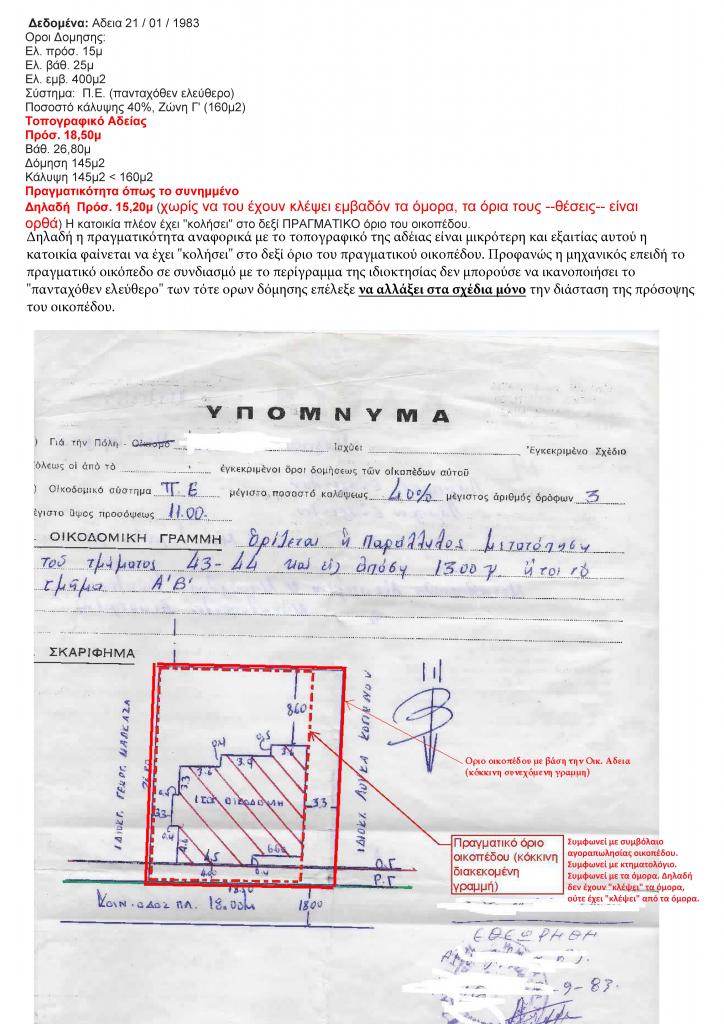 Δεδομένα: Αδεια 21 / 01 / 1983
Οροι Δομησης:
Ελ. πρόσ. 15μ
Ελ. βάθ. 25μ
Ελ. εμβ. 400μ2
Σύστημα: Π.Ε. (πανταχόθεν ελεύθερο)
Ποσοστό κάλυψης 40%, Ζώνη Γ' (160μ2)
Τοπογραφικό Αδείας
Πρόσ. 18,50μ
Βάθ. 26,80μ
Δόμηση 145μ2
Κάλυψη 145μ2 < 160μ2
Πραγματικότητα όπως το συνημμένο
Δηλαδή Πρόσ. 15,20μ (χωρίς να του έχουν κλέψει εμβαδόν τα όμορα, τα όρια τους --θέσεις-- είναι
ορθά) Η κατοικία πλέον έχει "κολήσει" στο δεξί ΠΡΑΓΜΑΤΙΚΟ όριο του οικοπέδου.
Δηλαδή η πραγματικότητα αναφορικά με το τοπογραφικό της αδέιας είναι μικρότερη και εξαιτίας αυτού η
κατοικία φαίνεται να έχει "κολήσει" στο δεξί όριο του πραγματικού οικοπέδου. Προφανώς η μηχανικός επειδή το
πραγματικό οικόπεδο σε συνδιασμό με το περίγραμμα της ιδιοκτησίας δεν μπορούσε να ικανοποιήσει το
"πανταχόθεν ελεύθερο" των τότε ορων δόμησης επέλεξε να αλλάξει στα σχέδια μόνο την διάσταση της πρόσοψης
του οικοπέδου.
ΥΠΟΜΝΥΜΑ
) Γιά τήν Πόλη - Οἰκισμό Ἰσχύει Ἐγκεκριμένο Σχέδιο
όλεως οἱ ἀπό τό ἐγκεκριμένοι ὅροι δομήσεως τῶν οἰκοπέδων αὐτοῦ
) Οἰκοδομικό σύστημα Π.Ε μέγιστο ποσοστό καλύψεως 40% μέγιστος ἀριθμός ὀρόφων 3
έγιστο ὕψος προσόψεως 11.00
. ΟΙΚΟΔΟΜΙΚΗ ΓΡΑΜΜΗ Ορίζεται ἡ παράλληλος μετατόπιση
τοῦ τμήματος 43-44 καί εἰς ἀπόστ 13.00 γ ἤτοι το
τμῆμα Α'Β'
. ΣΚΑΡΙΦΗΜΑ
860
ΙΔΙΟΚΤ. ΓΕΩΡΓ.
ΙΔΙΟΚΤ ΛΟΥΚΑ
Οριο οικοπέδου με βάση την Οικ. Αδεια
(κόκκινη συνεχόμενη γραμμη)
0.4
0.5
3.6
3.6
3.9
3.3
ΟΙΚΟΔΟΜΗ
3.3
3.3
0.4
4.5
6.60
4.00
0.4
Ο.Γ
Ρ.Γ.
Πραγματικό όριο
οικοπέδου (κόκκινη
διακεκομένη
γραμμή)
Συμφωνεί με συμβόλαιο
αγοραπωλησίας οικοπέδου.
Συμφωνεί με κτηματολόγιο.
Συμφωνεί με τα όμορα. Δηλαδή
δεν έχουν "κλέψει" τα όμορα,
ούτε έχει "κλέψει" από τα όμορα.
ΚΟΙΝ. ΟΔΟΣ ΠΛ. 18.00μ
1800
ΕΘΕΩΡΗΘΗ
-9-83.